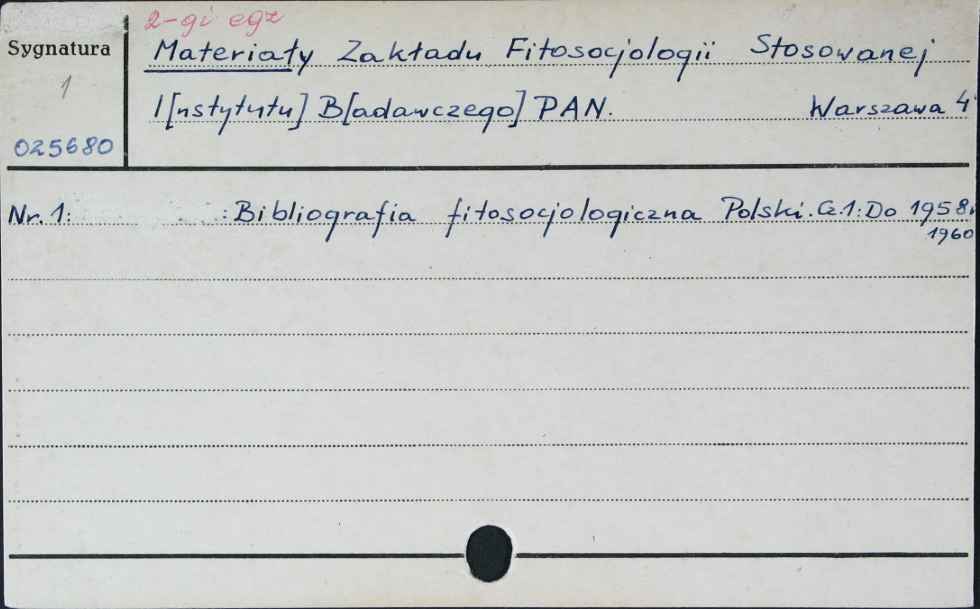 2-gi egz
Sygnatura
1
025680
Materiały Zakładu Fitosocjologii Stosowanej
I[nstytutu] B[adawczego] PAN. Warszawa 4
Nr. 1: : Bibliografia fitosocjologiczna Polski. Cz.1: Do 1958r.
1960